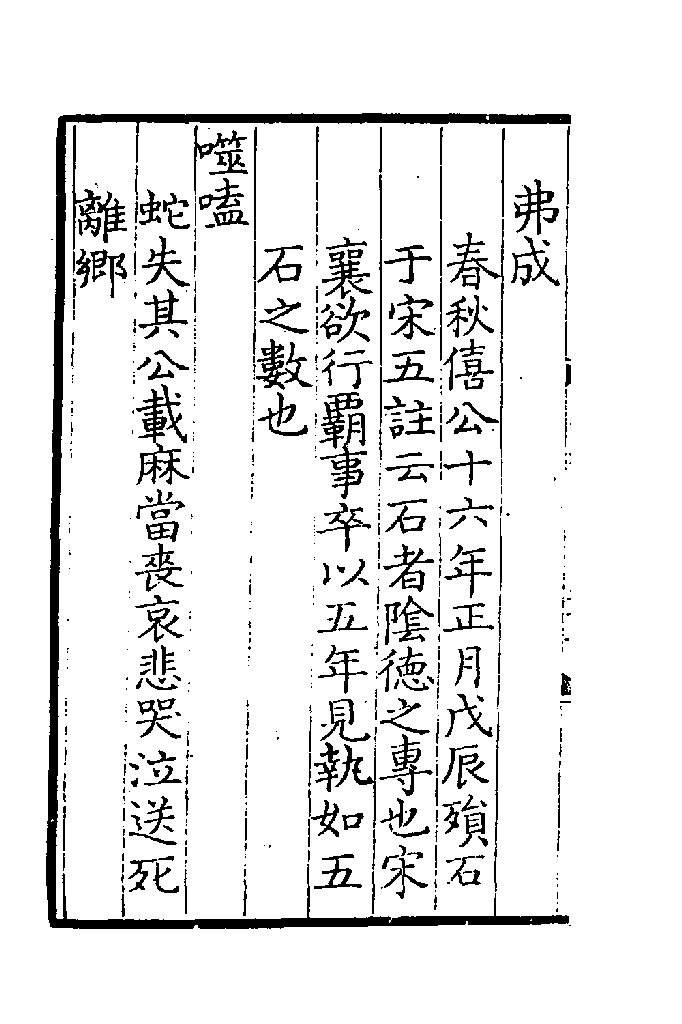 弗成
春秋僖公十六年正月戊辰殞石
于宋五註云石者陰德之專也宋
襄欲行覇事卒以五年見執如五
石之數也
噬嗑
蛇失其公載麻當喪哀悲哭泣送死
離鄉